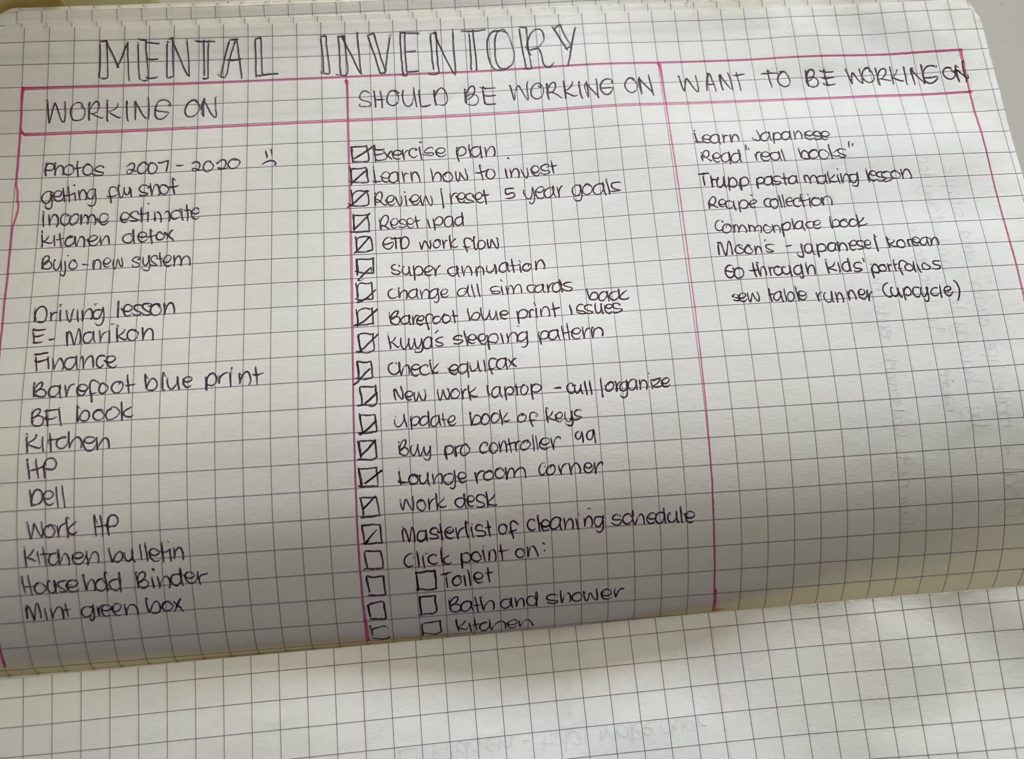 MENTAL INVENTORY
WORKING ON
Photos 2007-2020
getting flu shot
income estimate
kitchen detox
Bujo-new system
Driving lesson
E-Marikon
Finance
Barefoot blue print
BFI book
Kitchen
HP
Dell
Work HP
Kitchen bulletin
Household Binder
Mint green box
SHOULD BE WORKING ON
Exercise plan
Learn how to invest
Review/reset 5 year goals
Reset ipad
GTD work flow
super annuation
change all simcards
Barefoot blue print back issues
Kuya's sleeping pattern
Check equifax
New work laptop - cull/organize
Update book of keys
Buy pro controller 99
Lounge room corner
Work desk
Masterlist of cleaning schedule
Click point on:
Toilet
Bath and shower
Kitchen
WANT TO BE WORKING ON
Learn Japanese
Read "real books"
Trupp pasta making lesson
Recipe collection
Commonplace book
Moon's - japanese/korean
Go through kids' portfolios
sew table runner (upcycle)